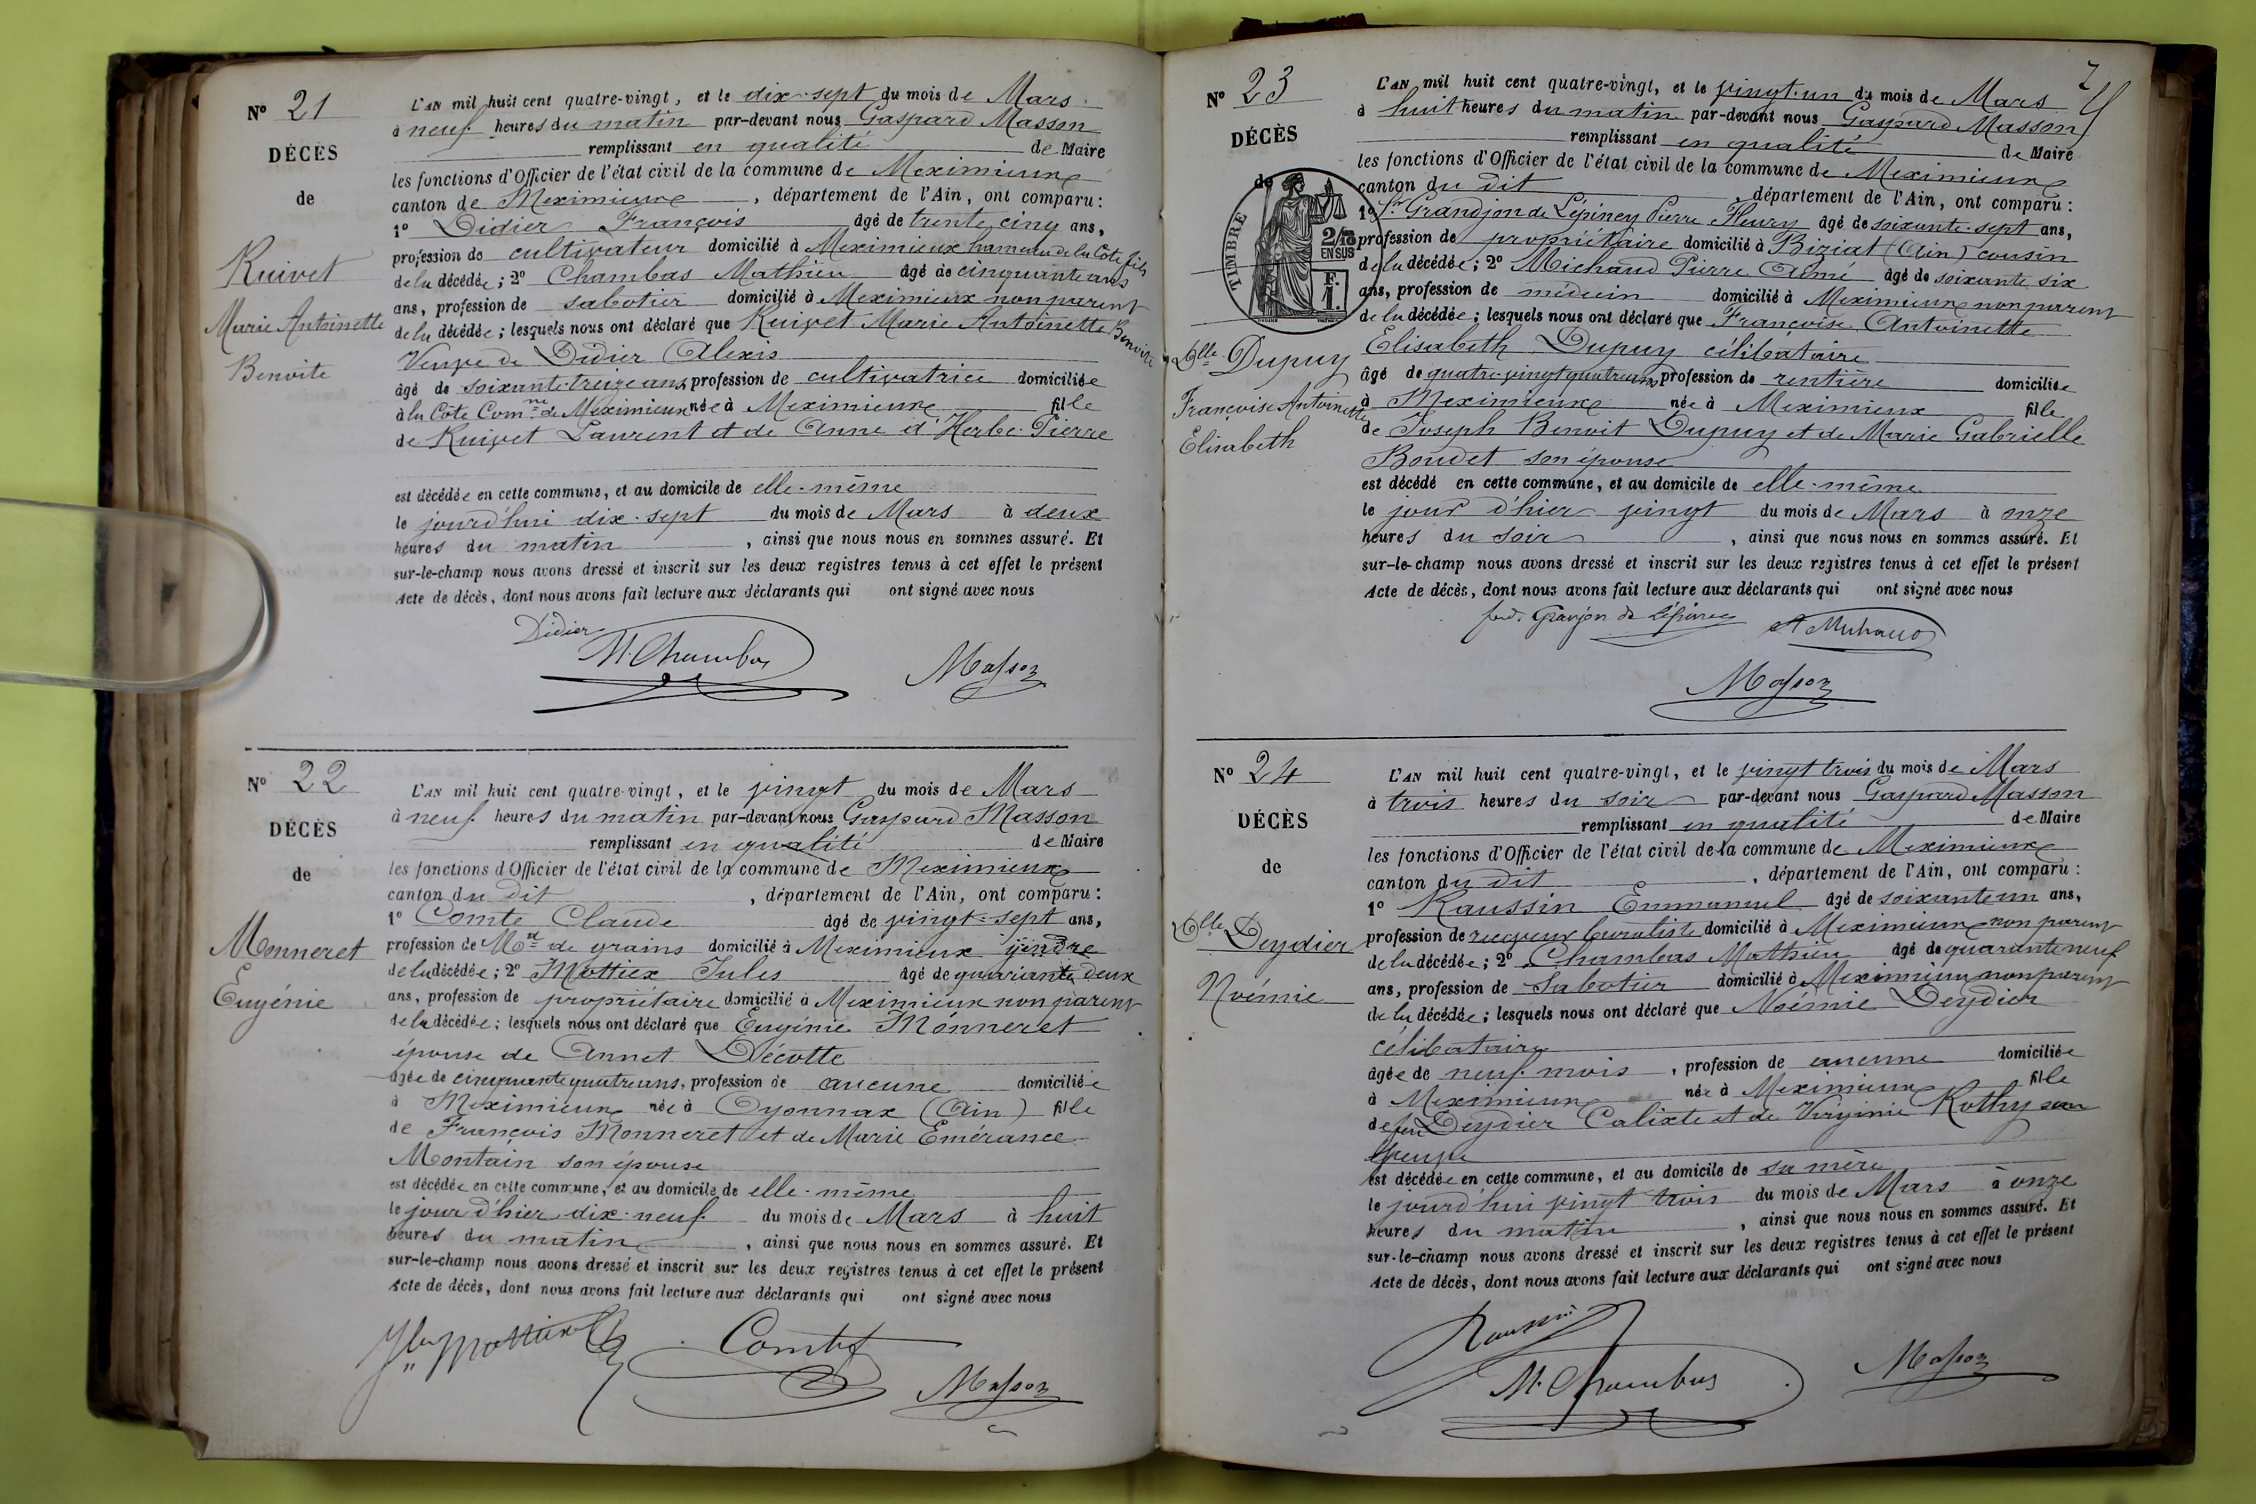 Nº 21
DÉCÈS
de
Ruivet
Marie Antoinette
Benoite
L'AN mil huit cent quatre-vingt, et le dix-sept du mois de Mars
à neuf heures du matin par-devant nous Gaspard Masson
remplissant en qualité de Maire
les fonctions d'Officier de l'état civil de la commune de Meximieux
canton de Meximieux, département de l'Ain, ont comparu :
1º Didier François âgé de trente cinq ans,
profession de cultivateur domicilié à Meximieux hameau de la Côte fils
de la décédée ; 2º Chambas Mathieu âgé de cinquante ans
ans, profession de sabotier domicilié à Meximieux non parent
de la décédée ; lesquels nous ont déclaré que Ruivet Marie Antoinette Benoite
Veuve de Didier Alexis
âgé de soixante-treize ans, profession de cultivatrice domiciliée
à la Côte Comne de Meximieux née à Meximieux fille
de Ruivet Laurent et de Anne d'Herbe-Pierre
est décédée en cette commune, et au domicile de elle-même
le jourd'hui dix-sept du mois de Mars à deux
heures du matin, ainsi que nous nous en sommes assuré. Et
sur-le-champ nous avons dressé et inscrit sur les deux registres tenus à cet effet le présent
Acte de décès, dont nous avons fait lecture aux déclarants qui ont signé avec nous
Didier
M. Chambas
Masson
Nº 22
DÉCÈS
de
Monneret
Eugénie
L'AN mil huit cent quatre-vingt, et le vingt du mois de Mars
à neuf heures du matin par-devant nous Gaspard Masson
remplissant en qualité de Maire
les fonctions d'Officier de l'état civil de la commune de Meximieux
canton du dit, département de l'Ain, ont comparu :
1º Comte Claude âgé de vingt-sept ans,
profession de Md de grains domicilié à Meximieux gendre
de la décédée ; 2º Mottiex Jules âgé de quarante deux
ans, profession de propriétaire domicilié à Meximieux non parent
de la décédée ; lesquels nous ont déclaré que Eugénie Monneret
épouse de Annet Décotte
âgée de cinquante quatre ans, profession de aucune domiciliée
à Meximieux née à Oyonnax (Ain) fille
de François Monneret et de Marie Emérance
Montain son épouse
est décédée en cette commune, et au domicile de elle-même
le jour d'hier dix-neuf du mois de Mars à huit
heures du matin, ainsi que nous nous en sommes assuré. Et
sur-le-champ nous avons dressé et inscrit sur les deux registres tenus à cet effet le présent
Acte de décès, dont nous avons fait lecture aux déclarants qui ont signé avec nous
Comte
Masson
7
Nº 23
DÉCÈS
de
TIMBRE
2/10
EN SUS
F.
1.
Dlle Dupuy
Françoise Antoinette
Elisabeth
L'AN mil huit cent quatre-vingt, et le vingt-un du mois de Mars
à huit heures du matin par-devant nous Gaspard Masson
remplissant en qualité de Maire
les fonctions d'Officier de l'état civil de la commune de Meximieux
canton du dit, département de l'Ain, ont comparu :
1º Sr Grandjon de Lépiney Pierre Fleury âgé de soixante-sept ans,
profession de propriétaire domicilié à Biziat (Ain) cousin
de la décédée ; 2º Michaud Pierre Aimé âgé de soixante six
ans, profession de médecin domicilié à Meximieux non parent
de la décédée ; lesquels nous ont déclaré que Françoise Antoinette
Elisabeth Dupuy célibataire
âgé de quatre-vingt quatre ans profession de rentière domiciliée
à Meximieux née à Meximieux fille
de Joseph Benoit Dupuy et de Marie Gabrielle
Boudet son épouse
est décédé en cette commune, et au domicile de elle-même
le jour d'hier vingt du mois de Mars à onze
heures du soir, ainsi que nous nous en sommes assuré. Et
sur-le-champ nous avons dressé et inscrit sur les deux registres tenus à cet effet le présent
Acte de décès, dont nous avons fait lecture aux déclarants qui ont signé avec nous
Masson
Nº 24
DÉCÈS
de
Dlle Deydier
Noémie
L'AN mil huit cent quatre-vingt, et le vingt trois du mois de Mars
à trois heures du soir par-devant nous Gaspard Masson
remplissant en qualité de Maire
les fonctions d'Officier de l'état civil de la commune de Meximieux
canton du dit, département de l'Ain, ont comparu :
1º Raussin Emmanuel âgé de soixante un ans,
profession de receveur buraliste domicilié à Meximieux non parent
de la décédée ; 2º Chambas Mathieu âgé de quarante neuf
ans, profession de Sabotier domicilié à Meximieux non parent
de la décédée ; lesquels nous ont déclaré que Noémie Deydier
célibataire
âgée de neuf mois, profession de aucune domiciliée
à Meximieux née à Meximieux fille
de feu Deydier Calixte et de Virginie Rothy sa
veuve
est décédée en cette commune, et au domicile de sa mère
le jourd'hui vingt trois du mois de Mars à onze
heures du matin, ainsi que nous nous en sommes assuré. Et
sur-le-champ nous avons dressé et inscrit sur les deux registres tenus à cet effet le présent
Acte de décès, dont nous avons fait lecture aux déclarants qui ont signé avec nous
Raussin
M. Chambas
Masson